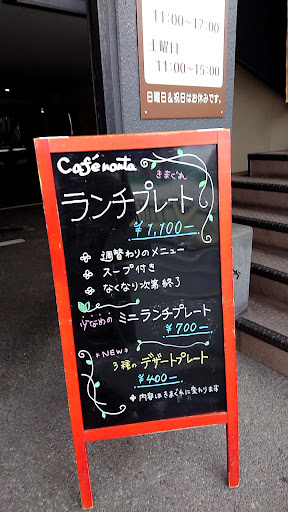 11:00~17:00
土曜日
11:00~15:00
日曜日&祝日はお休みです。
Café nanta
きまぐれ
ランチプレート
¥1,100-
週替わりのメニュー
スープ付き
なくなり次第終了
少なめの ミニランチプレート
¥700-
NEW
3種の デザートプレート
¥400-
内容はきまぐれに変わります